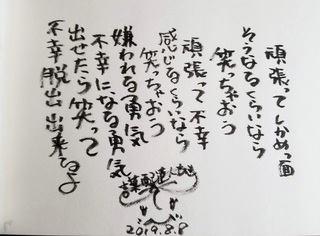 頑張ってしかめっ面
そうなるくらいなら
笑っちゃおう
頑張って不幸
感じるくらいなら
笑っちゃおう
嫌われる勇気
不幸になる勇気
出せたら笑って
不幸脱出出来るよ
2019.8.8